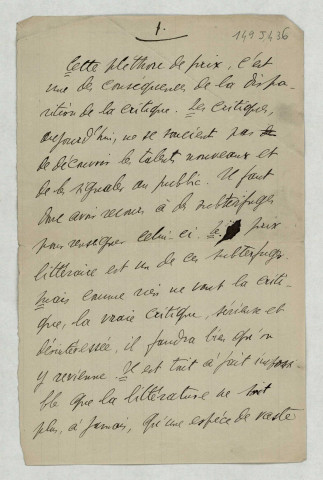 1.
149 J 436
Cette pléthore de prix, c'est
une des conséquences de la dispa-
rition de la critique. Les critiques,
aujourd'hui, ne se soucient pas
de découvrir les talents nouveaux et
de les signaler au public. Il faut
donc avoir recours à des subterfuges
pour renseigner celui-ci. Le prix
littéraire est un de ces subterfuges.
Mais comme rien ne vaut la criti-
que, la vraie critique, sérieuse et
désintéressée, il faudra bien qu'on
y revienne. Il est tout à fait impossi-
ble que la littérature ne soit
plus, à jamais, qu'une espèce de vaste